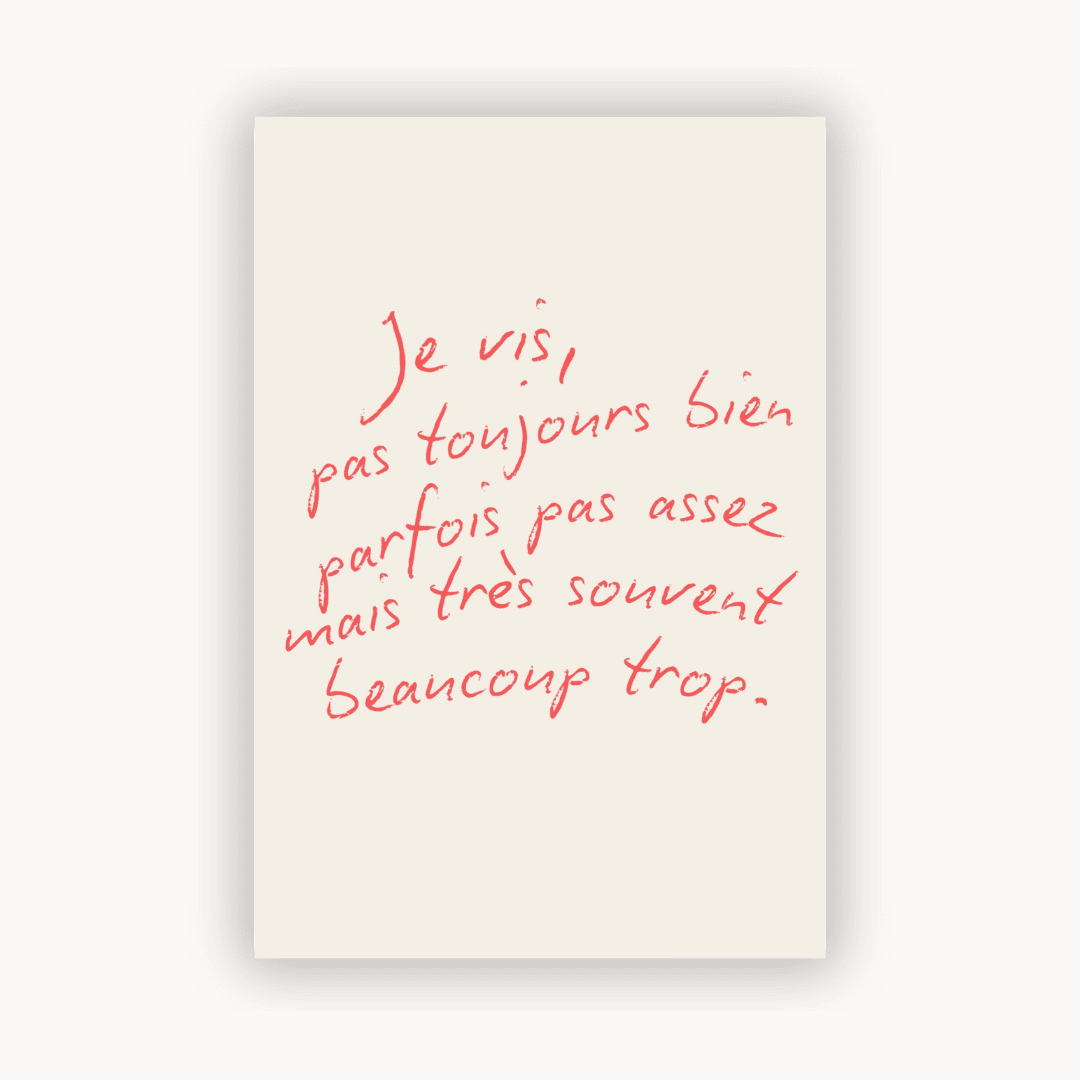 Je vis,
pas toujours bien
parfois pas assez
mais très souvent
beaucoup trop.